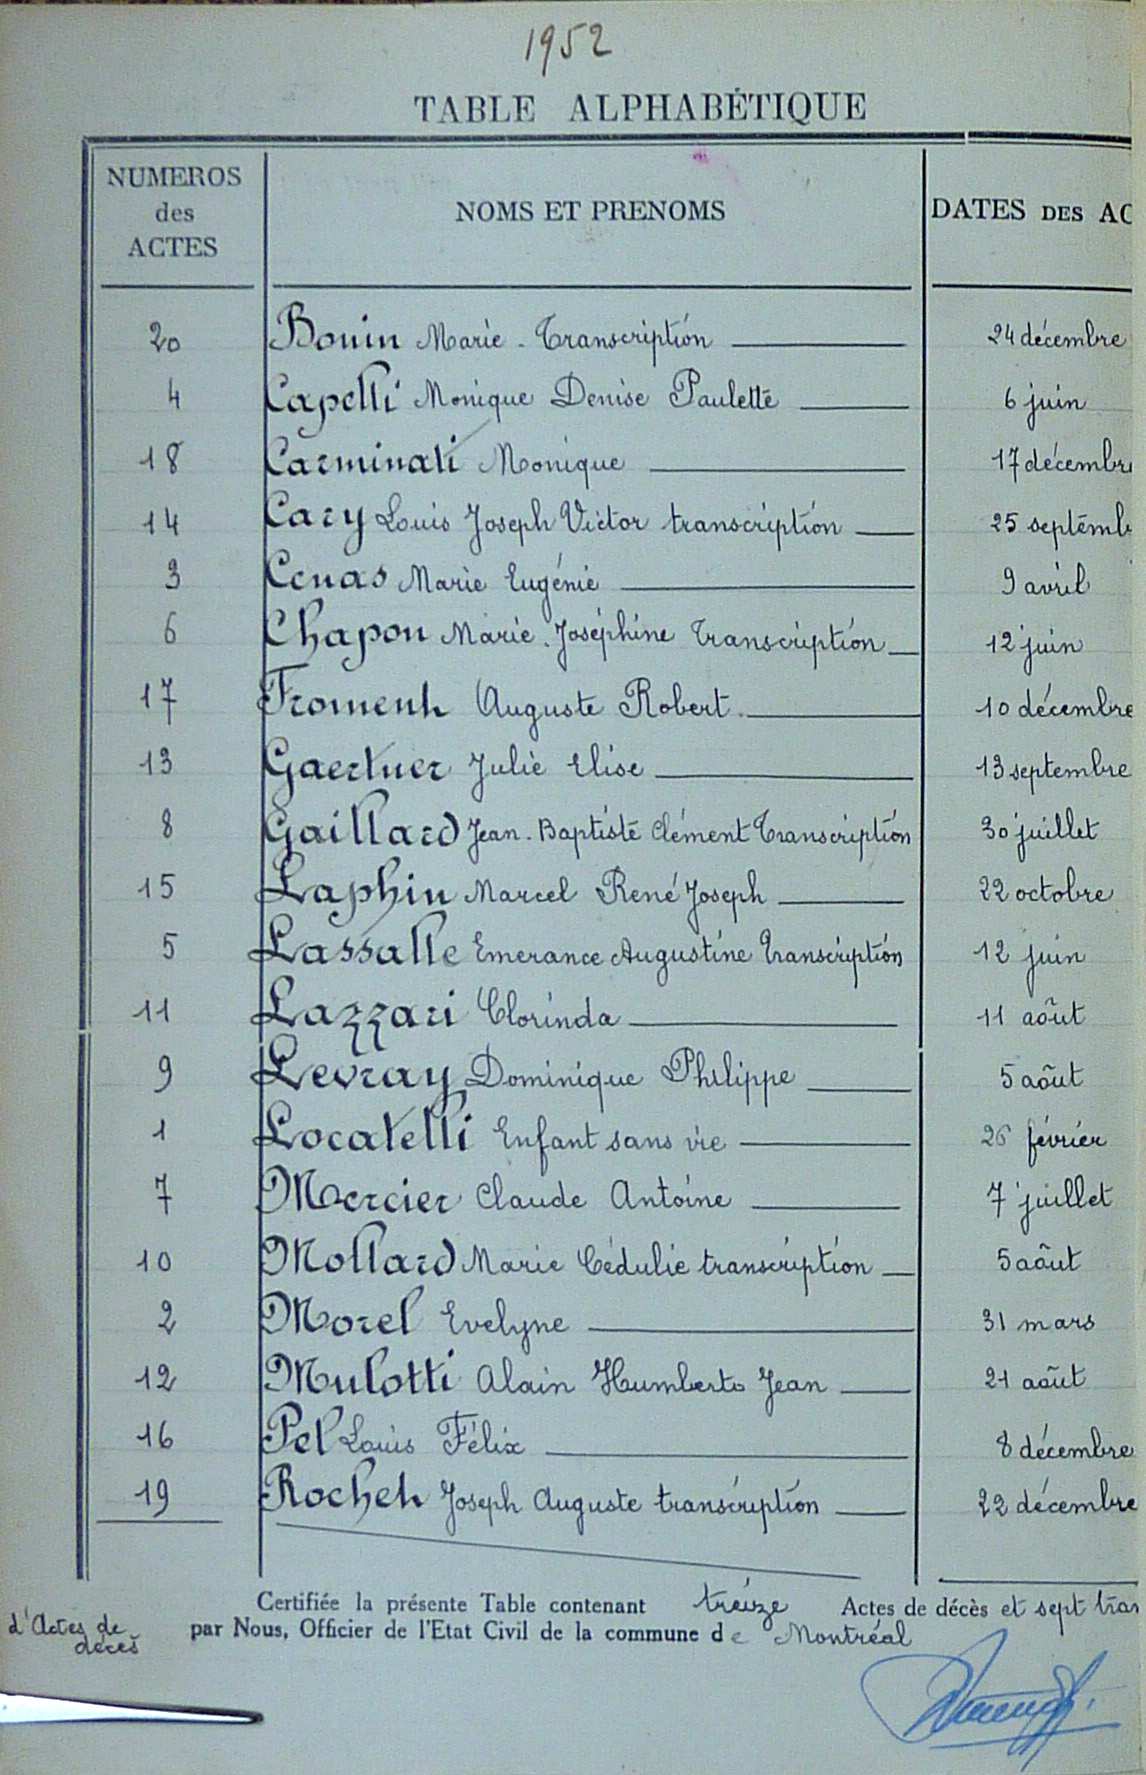 1952
TABLE ALPHABÉTIQUE
NUMEROS des ACTES NOMS ET PRENOMS DATES DES AC
20 Bonin Marie - Transcription 24 décembre
4 Capelli Monique Denise Paulette 6 juin
18 Carminati Monique 17 décembre
14 Cary Louis Joseph Victor transcription 25 septemb
3 Cenas Marie Eugénie 9 avril
6 Chapon Marie-Joséphine Transcription 12 juin
17 Froment Auguste Robert 10 décembre
13 Gaertner Julie Elise 13 septembre
8 Gaillard Jean-Baptiste Clément Transcription 30 juillet
15 Laphin Marcel René Joseph 22 octobre
5 Lassalle Emerance Augustine Transcription 12 juin
11 Lazzari Clorinda 11 août
9 Levray Dominique Philippe 5 août
1 Locatelli Enfant sans vie 26 février
7 Mercier Claude Antoine 7 juillet
10 Mollard Marie Cédulie transcription 5 août
2 Morel Evelyne 31 mars
12 Mulotti Alain Humberto Jean 21 août
16 Pel Louis Félix 8 décembre
19 Rochet Joseph Auguste transcription 22 décembre
Certifiée la présente Table contenant treize Actes de décès et sept tran
d'Actes de décès
par Nous, Officier de l'Etat Civil de la commune de Montréal